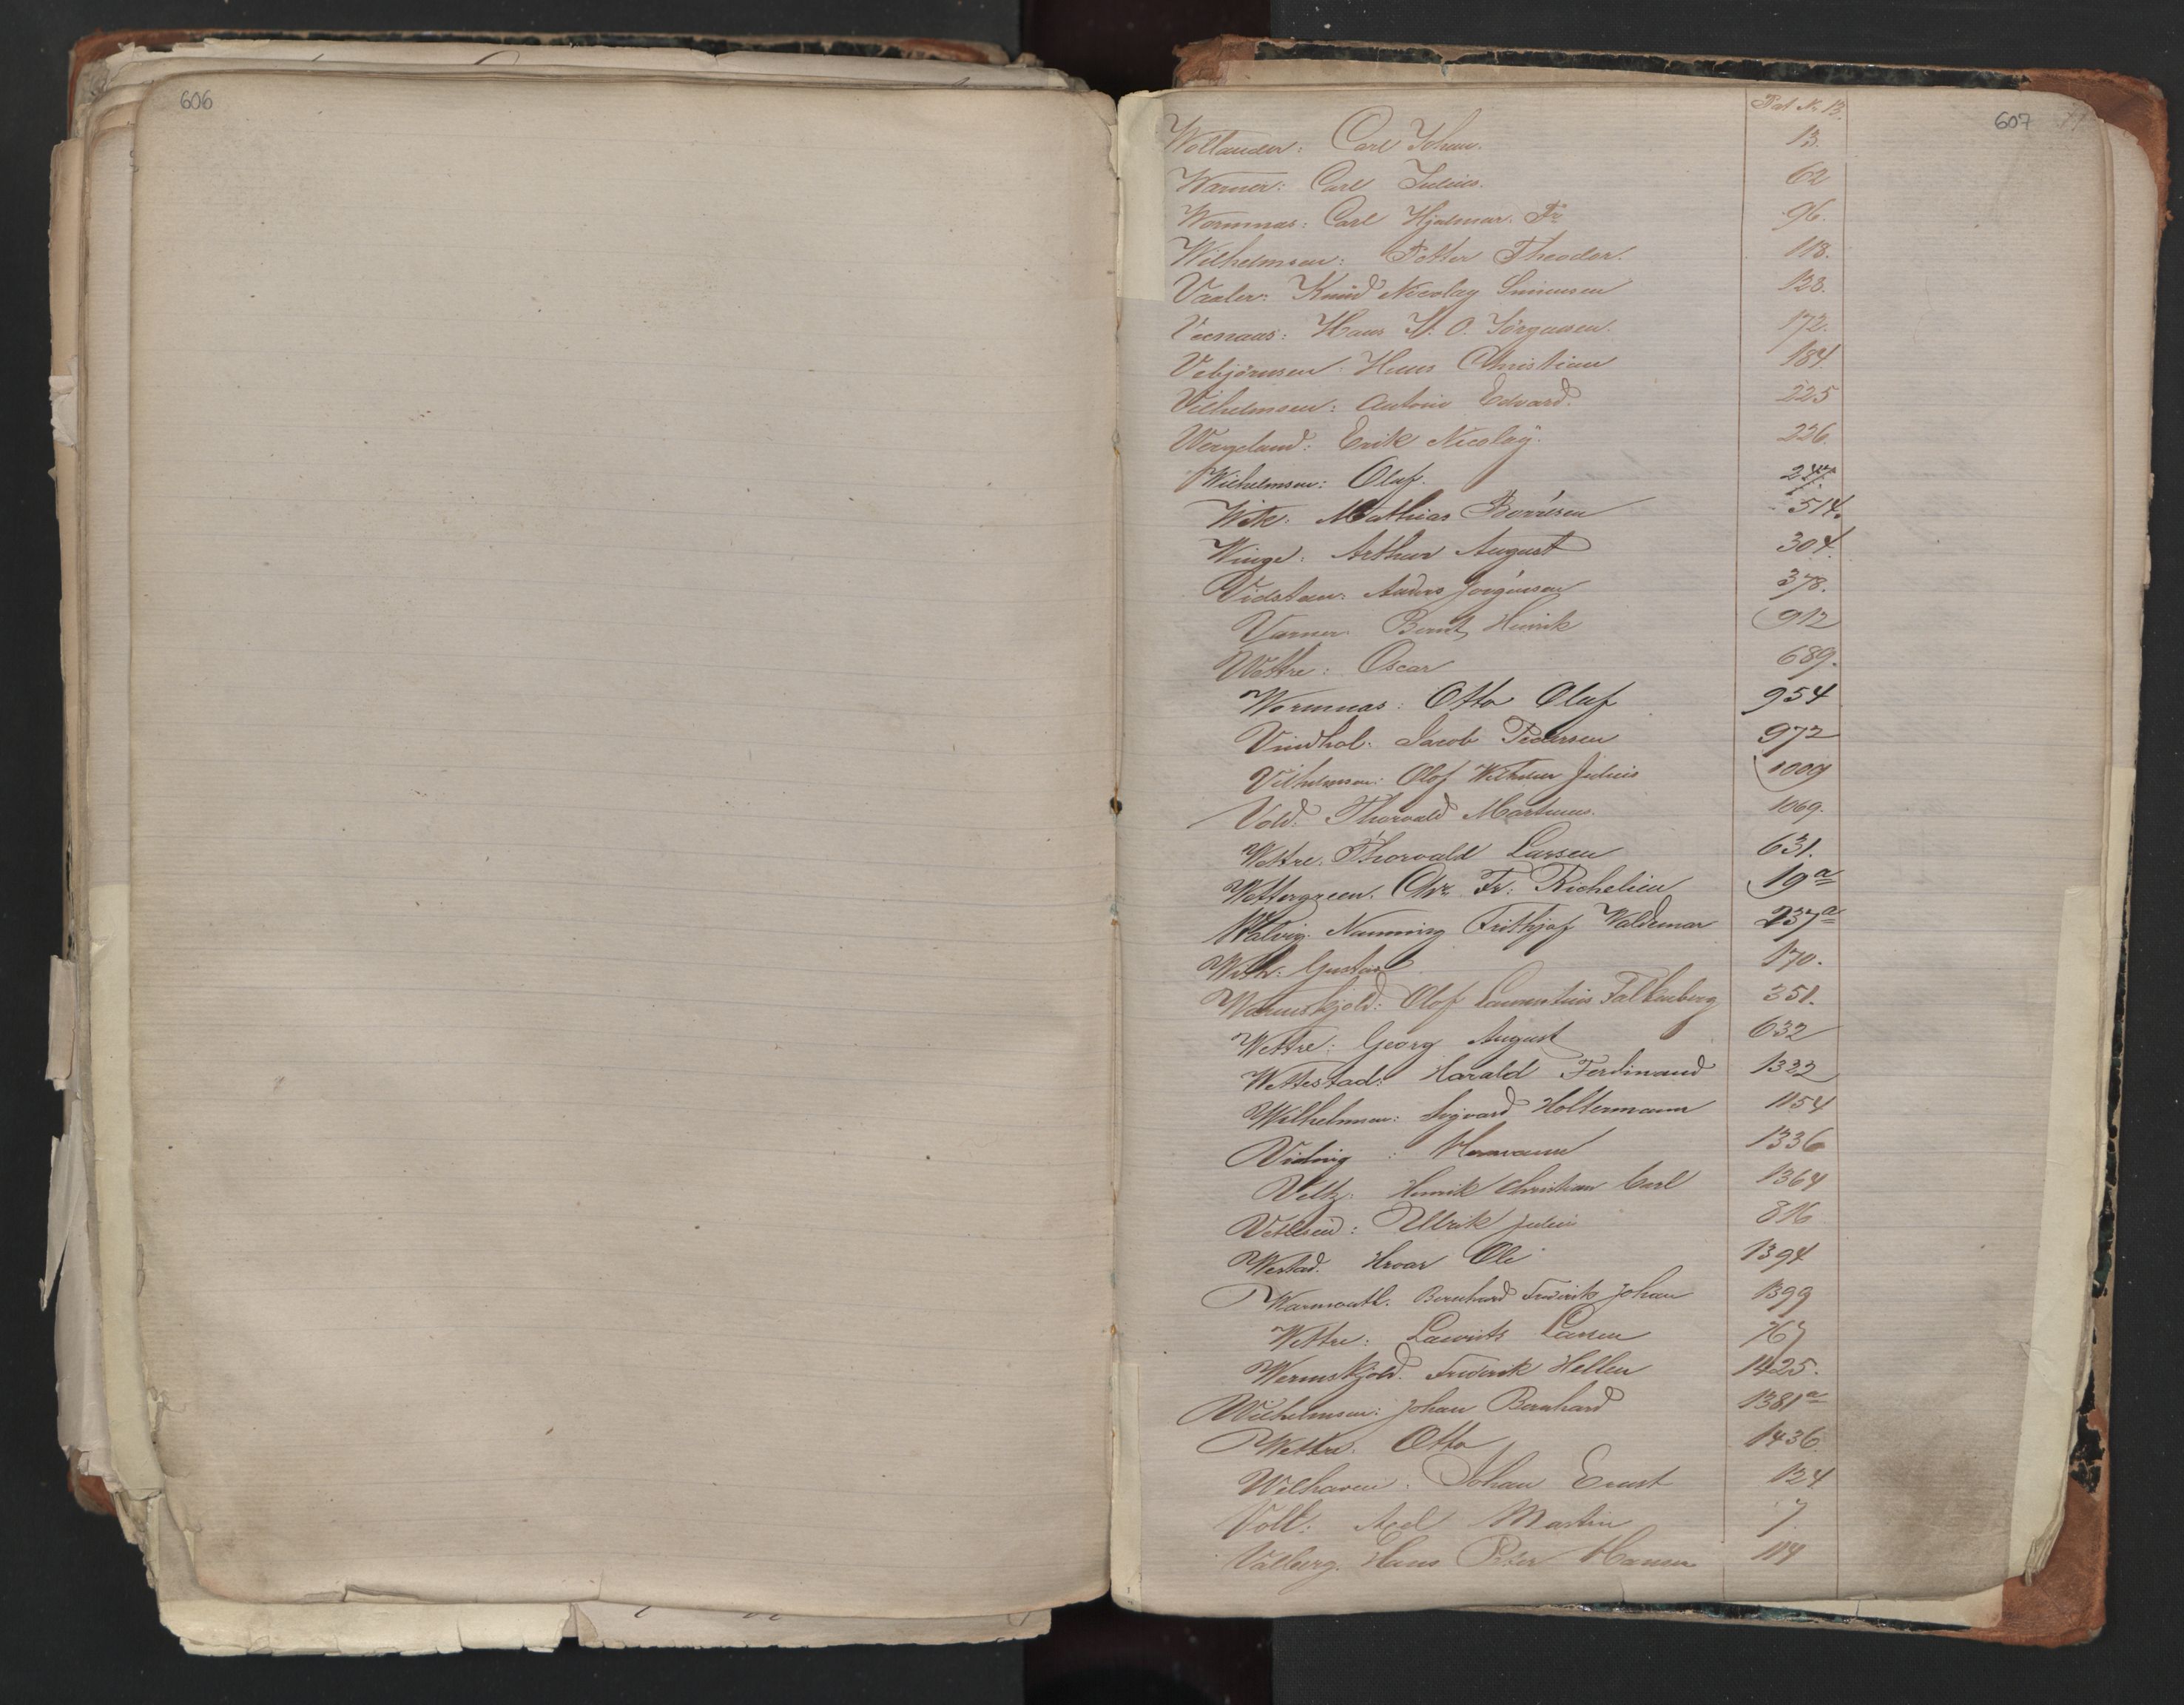 606
607
Pat No 13.
Wollander: Carl Johan. 13.
Warner: Carl Julius. 62
Wormnæs: Carl Hjalmar. Fr 96.
Wilhelmsen: Petter Theodor. 118.
Vaaler: Knud Nicolay Simensen 128.
Hans H. O. Jørgensen. 172.
Vebjørnsen Hans Christian 184.
Vilhelmsen: Anton Edvard. 225
Wergeland: Erik Nicolay. 226.
Wilhelmsen: Oluf.
Wik: Mathias Borresen 514.
Winge: Arthur August 304.
Vidsten: Anders Jørgensen 378.
Varner: Bernt Henrik 912
Wettre: Oscar 689.
Wormnæs: Otto Oluf 954
Vindhol: Jacob Pedersen 972
Vilhelmsen: Olof Wilhelm Julius 1009
Vold: Thorvald Martinus. 1069.
Wettre: Thorvald Larsen 631.
Wettergreen. Chr. Fr. Richelieu 19a
Walvig. Nanning Fridthjof Waldemar 237a
Gustav 170.
Wærnskjold: Olof Laurentius Falkenberg 351.
Wettre: Georg August 632
Wettestad: Harald Ferdinand 1332
Wilhelmsen: Sigvard Holtermann 1154
Viding: Hermann 1336
Veltz: Henrik Christian Carl 1364
Vetlesen: Ulrik Julius 816
Westad. Hroar Ole 1394
Warmouth. Bernhard Fredrik Johan 1399
Wettre: Laurits Larsen 767
Wernskjold. Fredrik Hellen 1425.
Wilhelmsen: Johan Bernhard 1381a
Wettre. Otto 1436.
Welhaven. Johan Ernst 124
Voll: Axel Martin 7
Valberg. Hans Peter Hansen 114